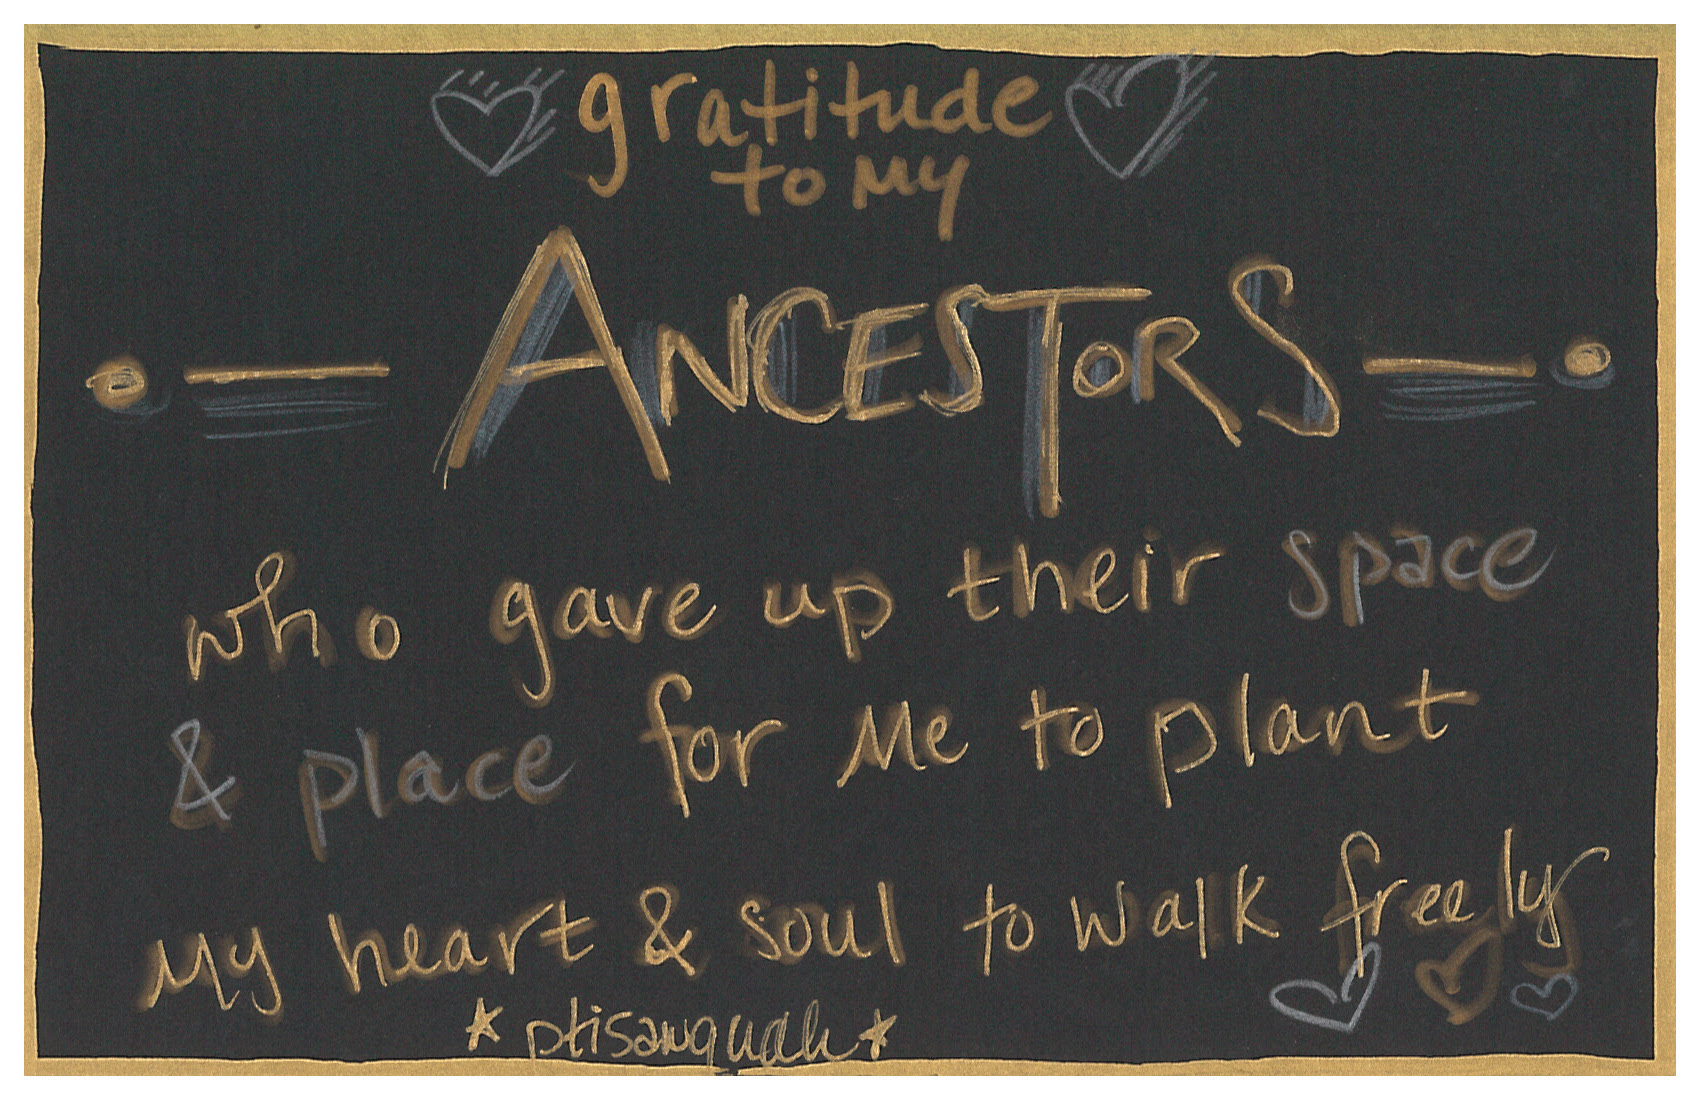 gratitude
to my
ANCESTORS
who gave up their space
& place for me to plant
my heart & soul to walk freely
*ptisawquah*